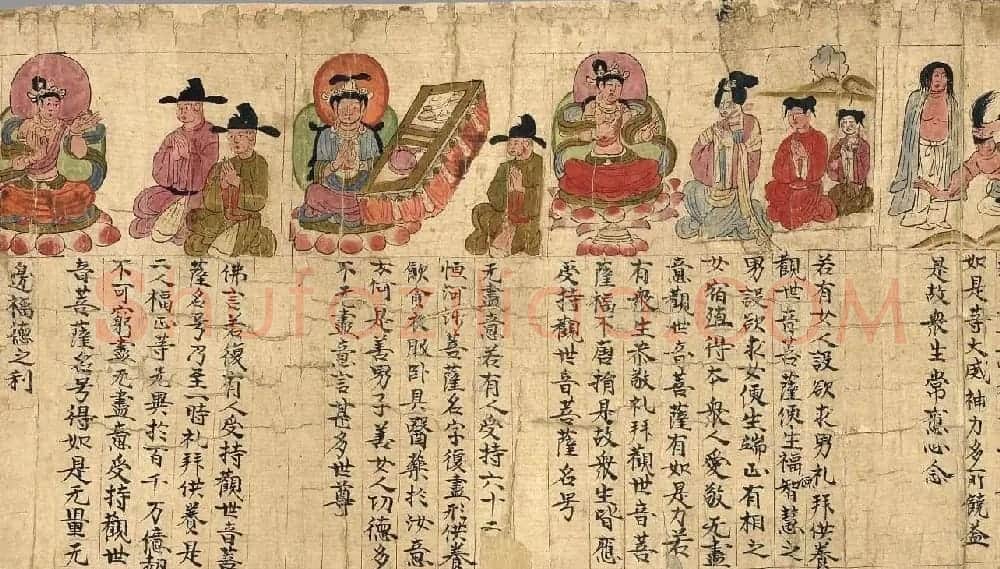 如是等大威神力多所饒益
是故衆生常應心念
若有女人設欲求男礼拜供養
觀世音菩薩便生福智慧之
男設欲求女便生端正有相之
女宿殖得本衆人愛敬无盡
意觀世音菩薩有如是力若
有衆生恭敬礼拜觀世音菩
薩福不唐捐是故衆生皆應
受持觀世音菩薩名号
无盡意若有人受持六十二
恒河沙菩薩名字復盡形供養
飲食衣服卧具醫藥於汝意
云何是善男子善女人功德多
不无盡意言甚多世尊
佛言若復有人受持觀世音菩
薩名号乃至一時礼拜供養是
二人福正等无異於百千万億劫
不可窮盡无盡意受持觀世
音菩薩名号得如是无量无
邊福德之利